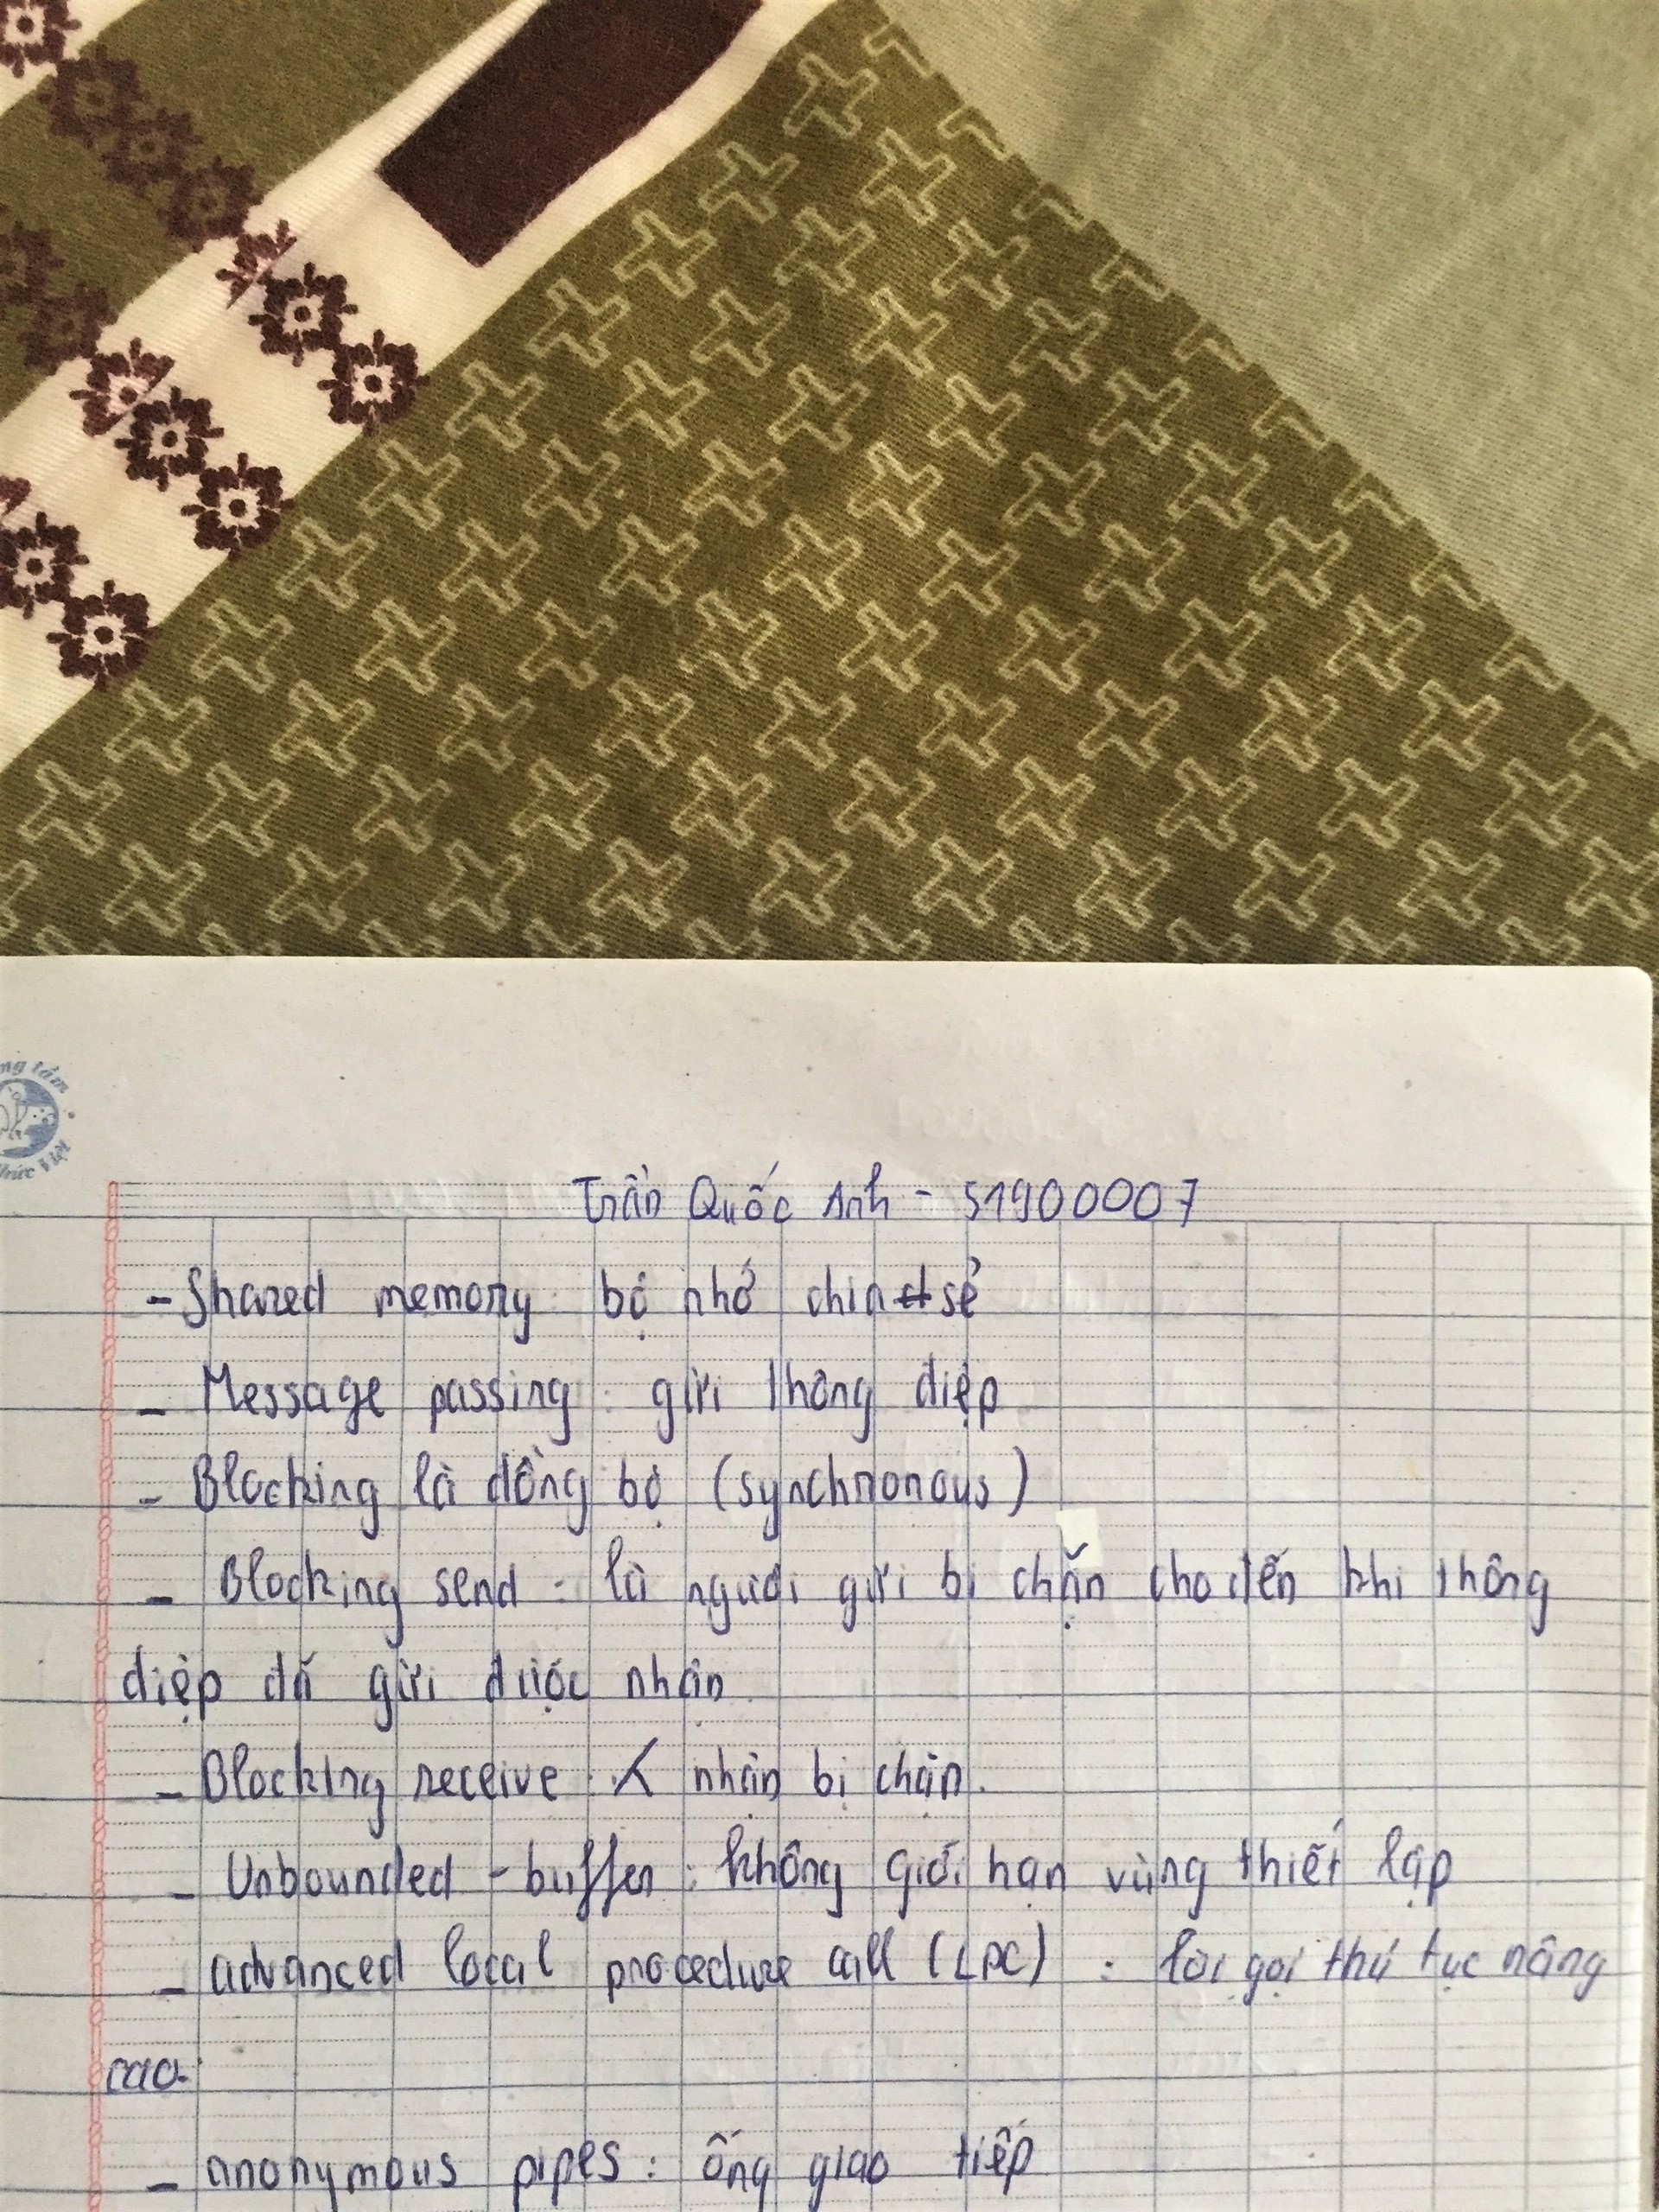 Trần Quốc Anh - 51900007
- Shared memory: bộ nhớ chia sẻ
- Message passing: gửi thông điệp
- Blocking là đồng bộ (synchronous)
- Blocking send: là người gửi bị chặn cho đến khi thông
điệp đã gửi được nhận
- Blocking receive: nhận bị chặn.
- Unbounded - buffer: không giới hạn vùng thiết lập
- advanced local procedure call (LPC): lời gọi thủ tục nâng
cao.
- anonymous pipes: ống giao tiếp